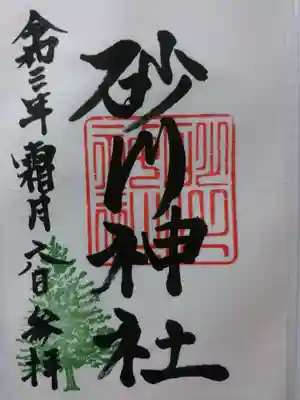 砂川神社
令和三年霜月六日参拝